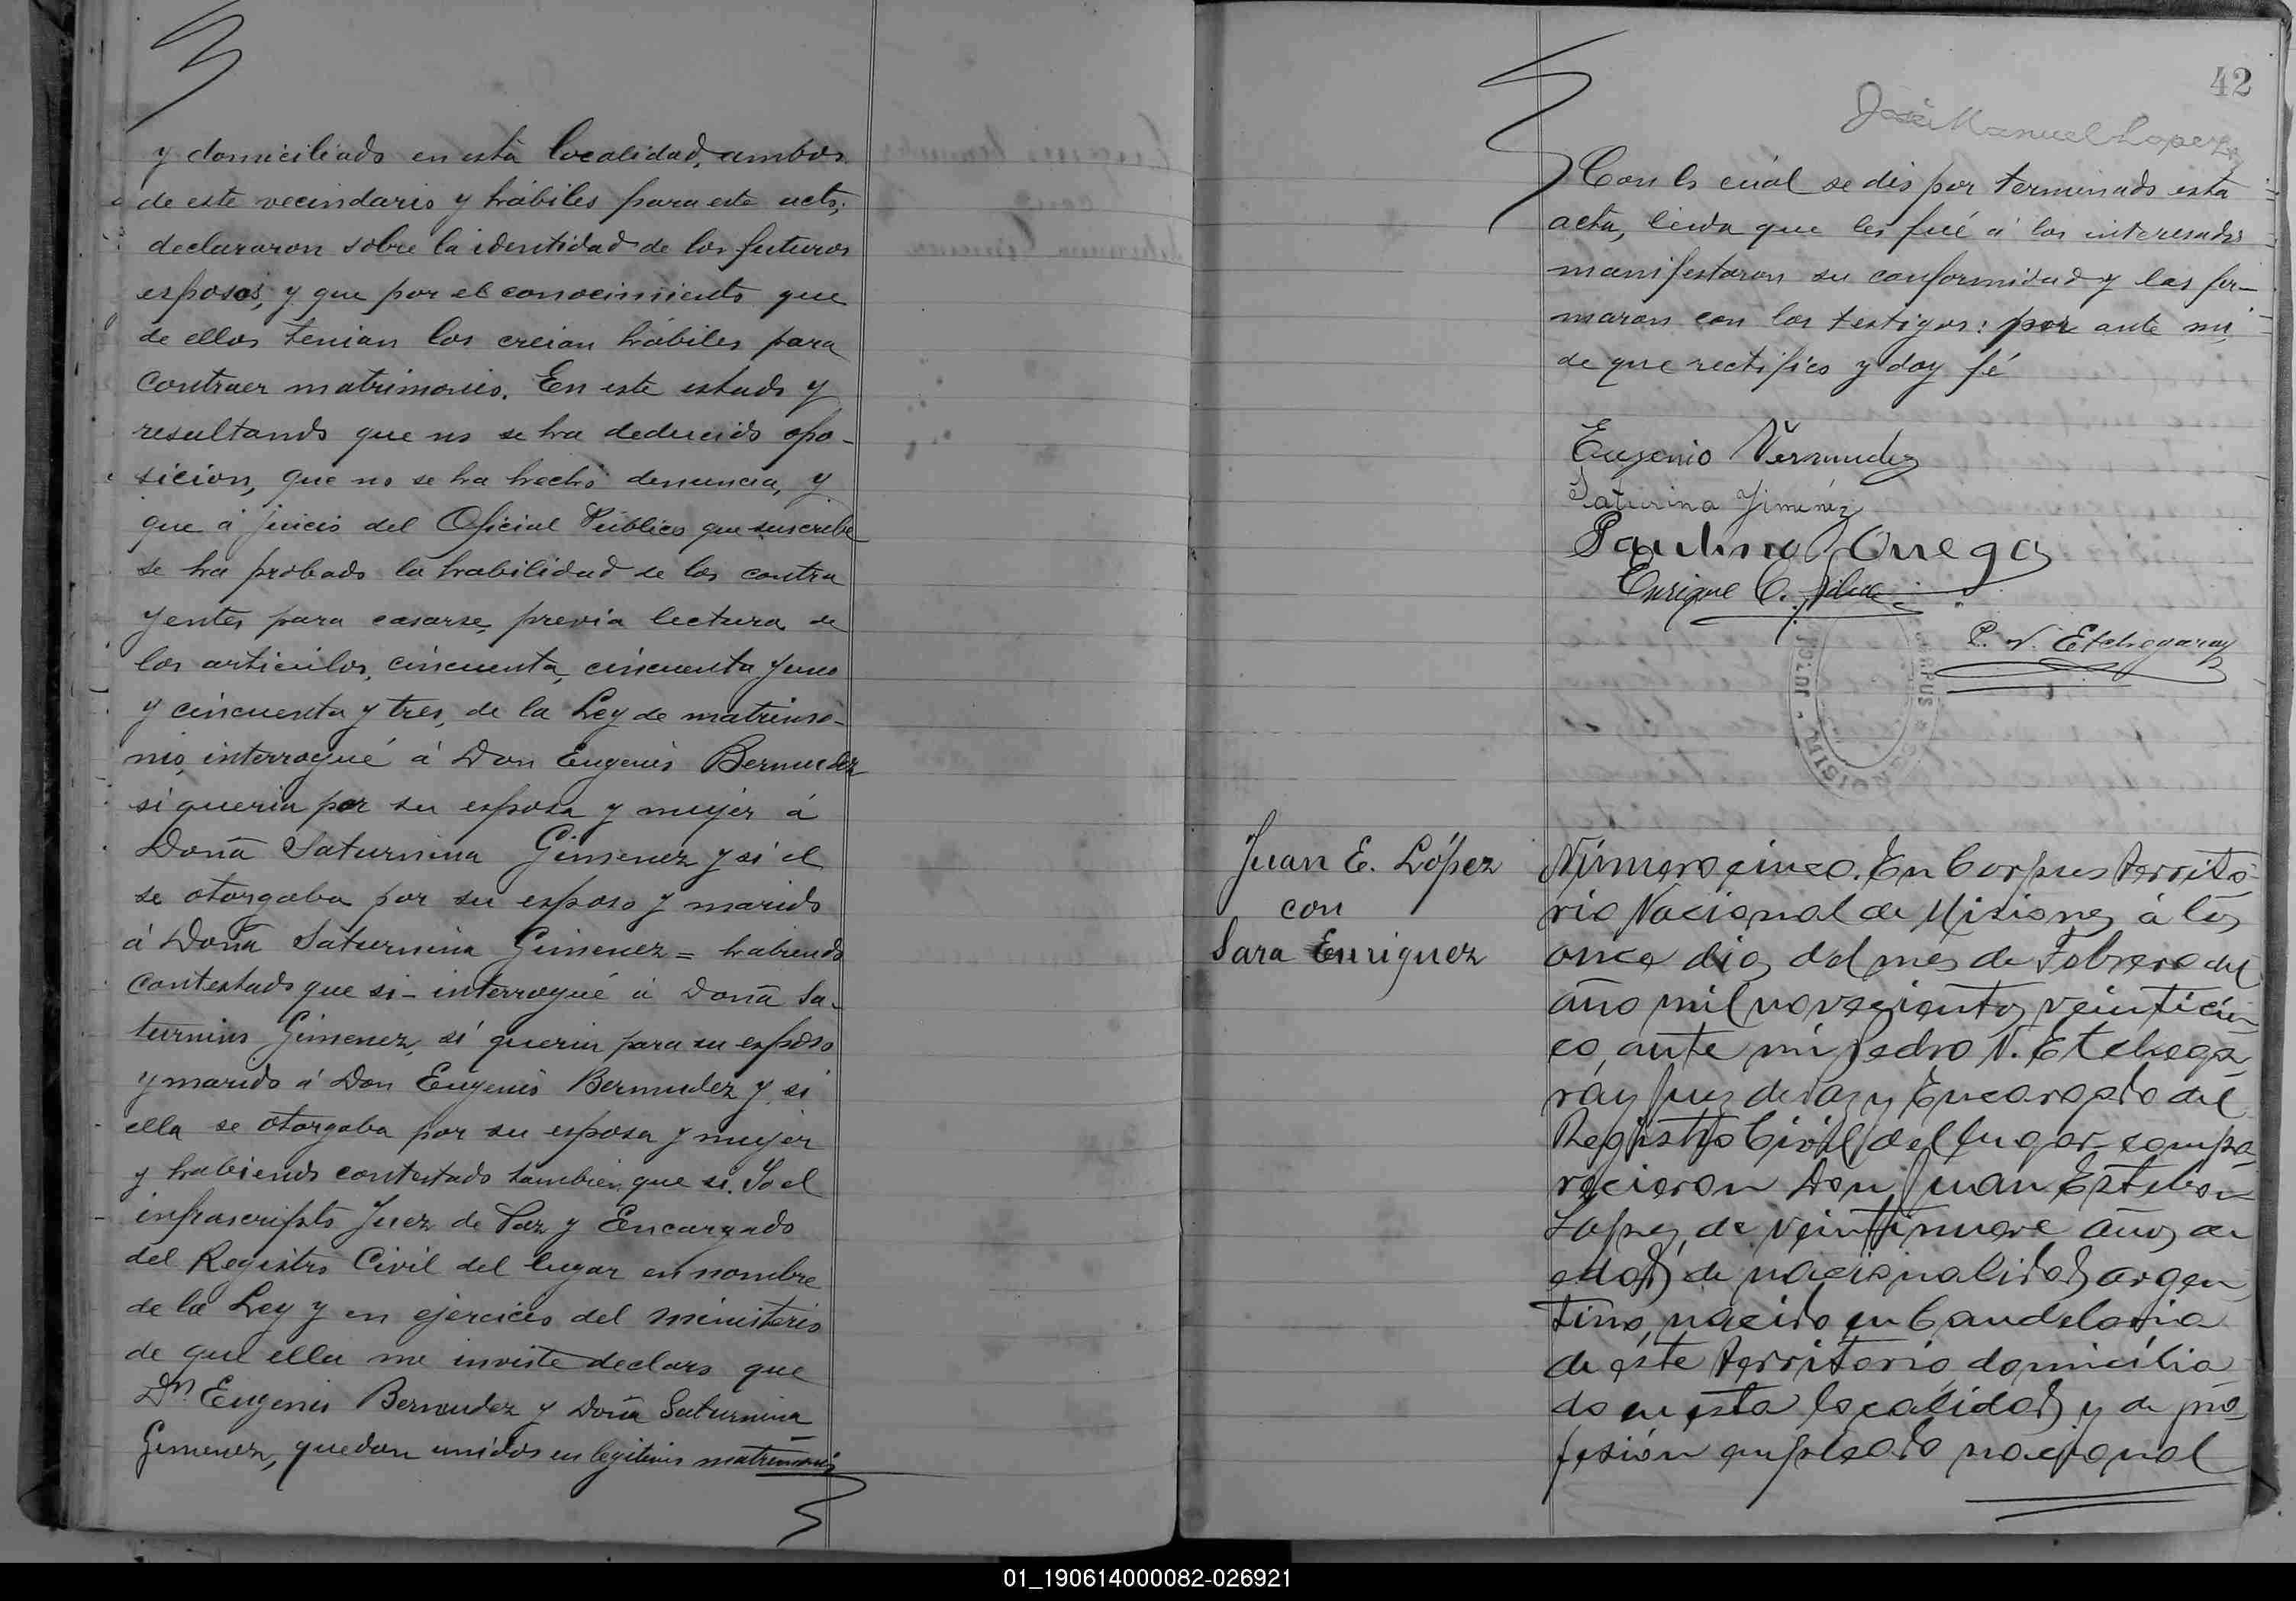 y domiciliado en esta localidad, ambos
de este vecindario y hábiles para este acto;
declararon sobre la identidad de los futuros
esposos, y que por el conocimiento que
de ellos tenian los creian hábiles para
contraer matrimonio. En este estado y
resultando que no se ha deducido opo-
sicion, que no se ha hecho denuncia, y
que á juicio del Oficial Público que suscribe
se ha probado la habilidad de los contra
yentes para casarse, previa lectura de
los articulos, cincuenta, cincuenta y uno
y cincuenta y tres, de la Ley de matrimo-
nio, interrogué á Don Eugenio Bermudez
si queria por su esposa y mujer á
Doña Saturnina Gimenez y si el
se otorgaba por su esposo y marido
á Doña Saturnina Gimenez = habiendo
contestado que si - interrogué á Doña Sa-
turnina Gimenez, si queria para su esposo
y marido á Don Eugenio Bermudez y si
ella se otorgaba por su esposa y mujer
y habiendo contestado tambien que si. Yo el
infrascripto Juez de Paz y Encargado
del Registro Civil del lugar en nombre
de la Ley y en ejercicio del ministerio
de que ella me inviste declaro que
Dn. Eugenio Bermudez y Doña Saturnina
Gimenez, quedan unidos en legitimo matrimonio
42
José Manuel Lopez
Con lo cuál se dió por terminado esta
acta, leida que les fué á los interesados
manifestaron su conformidad y las fir-
maron con los testigos: por ante mi,
de que rectifico y doy fé
Eugenio Vermudez
Saturina Jimenez
Paulino Orrego
Enrique C.
P. N. Etchegaray
JUZGA
CORPUS
MISIO
Juan E. López
con
Sara Enriquez
Número cinco. En Corpus Territo-
rio Nacional de Misiones, á los
once dias del mes de Febrero del
año mil novecientos veinticin-
co, ante mí Pedro N. Etchega-
ráy Juez de Paz y Encargado del
Registro Civil del lugar, compa-
recieron Don Juan Esteban
Lopez, de veintinueve años de
edad, de nacionalidad argen
tino, nacido en Candelaria
de éste Territorio, domicilia
do en ésta localidad y de pro-
fesión empleado nacional
01_190614000082-026921